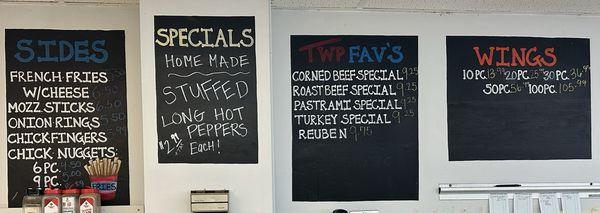 SIDES
FRENCH FRIES
W/CHEESE
MOZZ STICKS 6.50
ONION RINGS 5.50
CHICK FINGERS
CHICK. NUGGETS:
6 PC.
9 PC.
FRIES
SPECIALS
HOME MADE
STUFFED
LONG HOT
PEPPERS
Each!
TWP FAV'S
CORNED BEEF SPECIAL 9.25
ROAST BEEF SPECIAL 9.25
PASTRAMI SPECIAL 9.25
TURKEY SPECIAL 9.25
REUBEN 9.75
WINGS
10 PC. 20 PC. 30 PC.
50 PC. 100 PC. 105.99